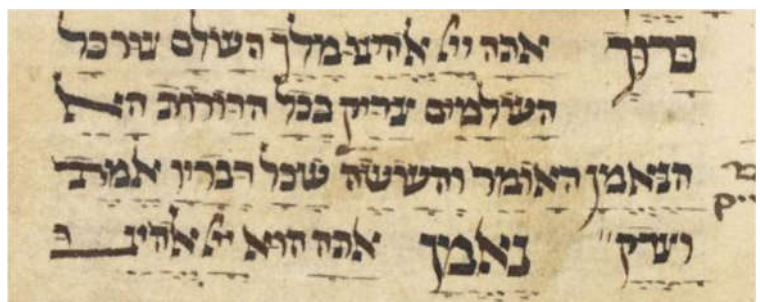 ברוך אתה ייי אלהינו מלך העולם צור כל
העולמים צדיק בכל הדורות האל
הנאמן האומר והעושה שכל דבריו אמת
וצדק נאמן אתה הוא ייי אלהינו